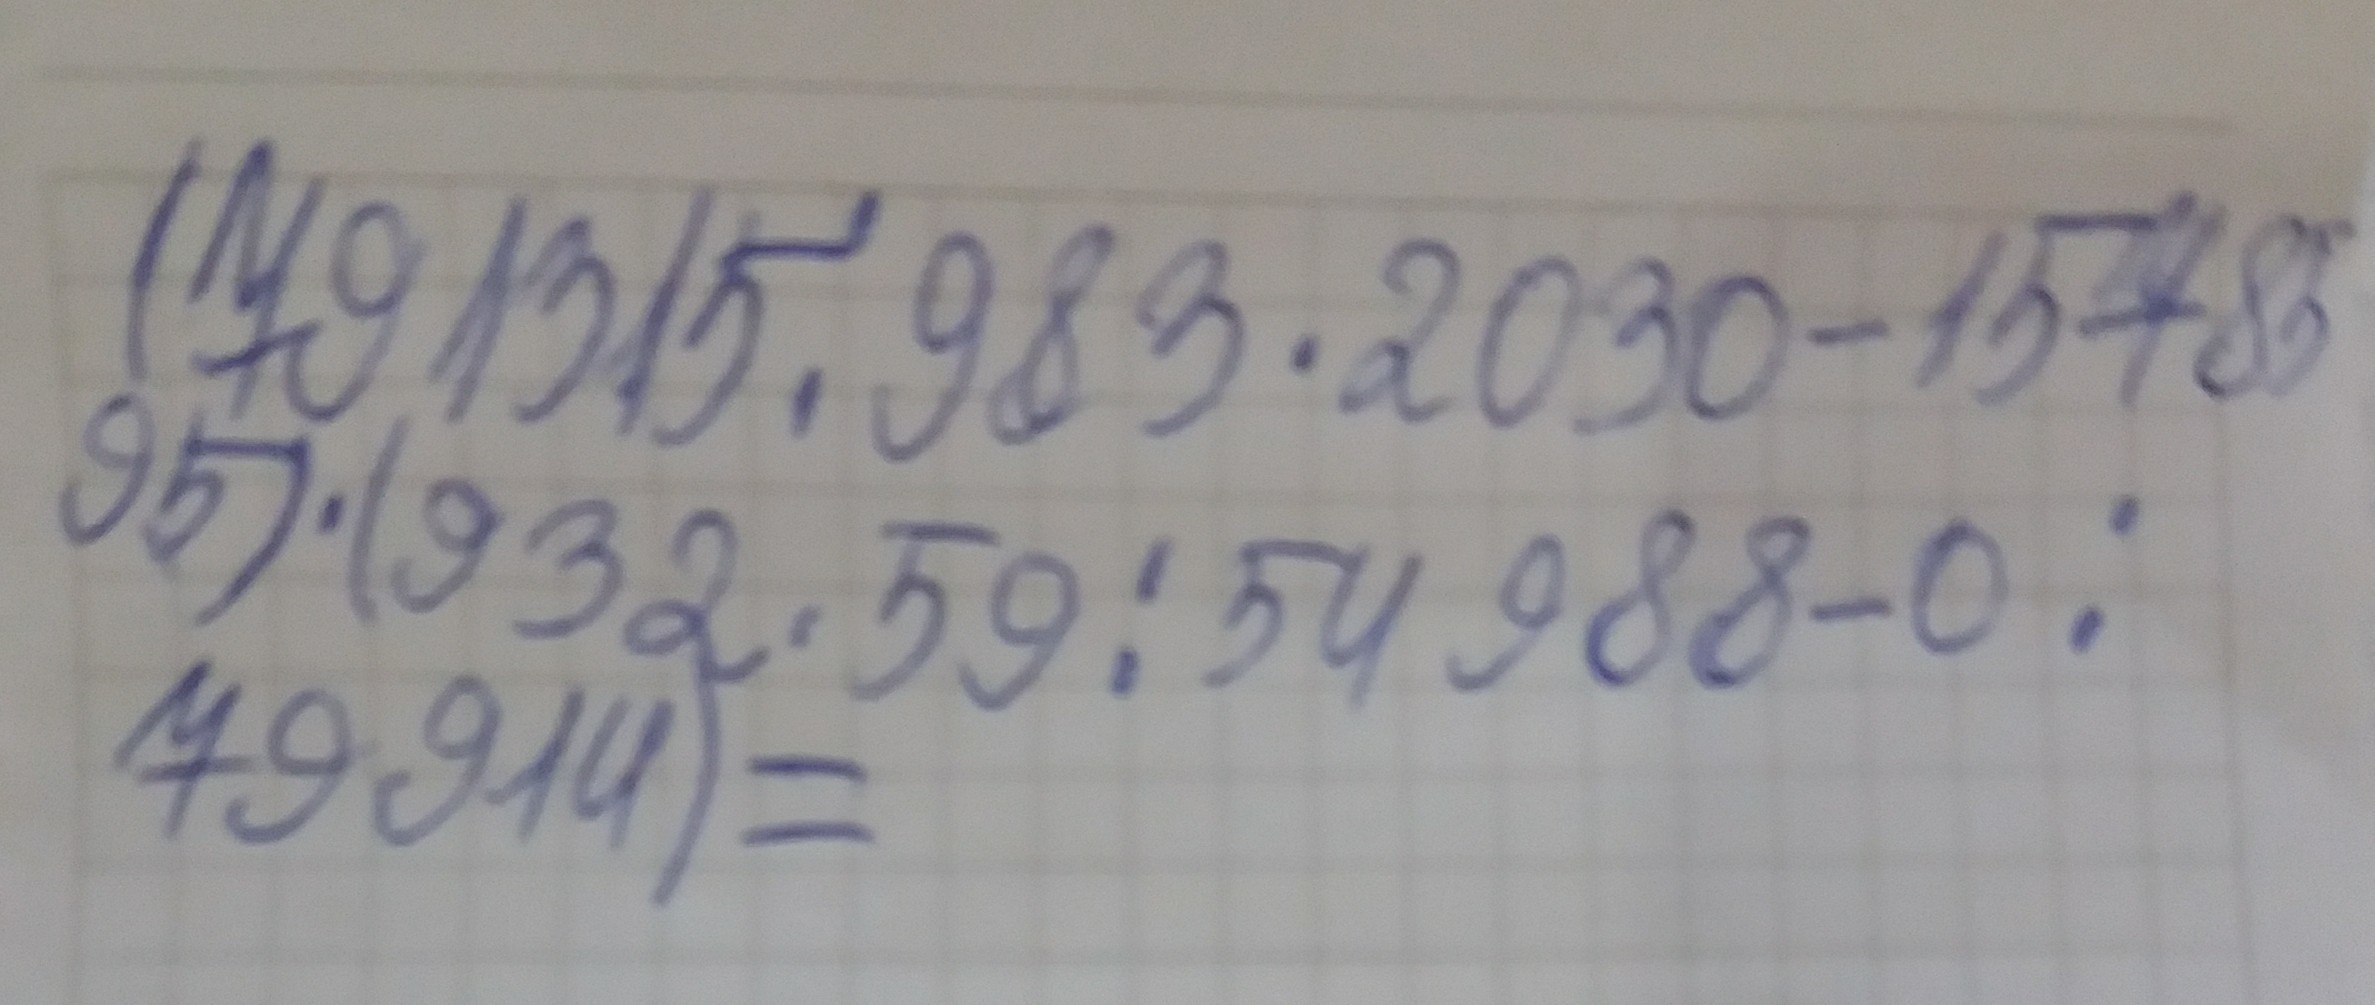 (791315:983·2030-15785
95)·(932·59:54988-0:
79914)=